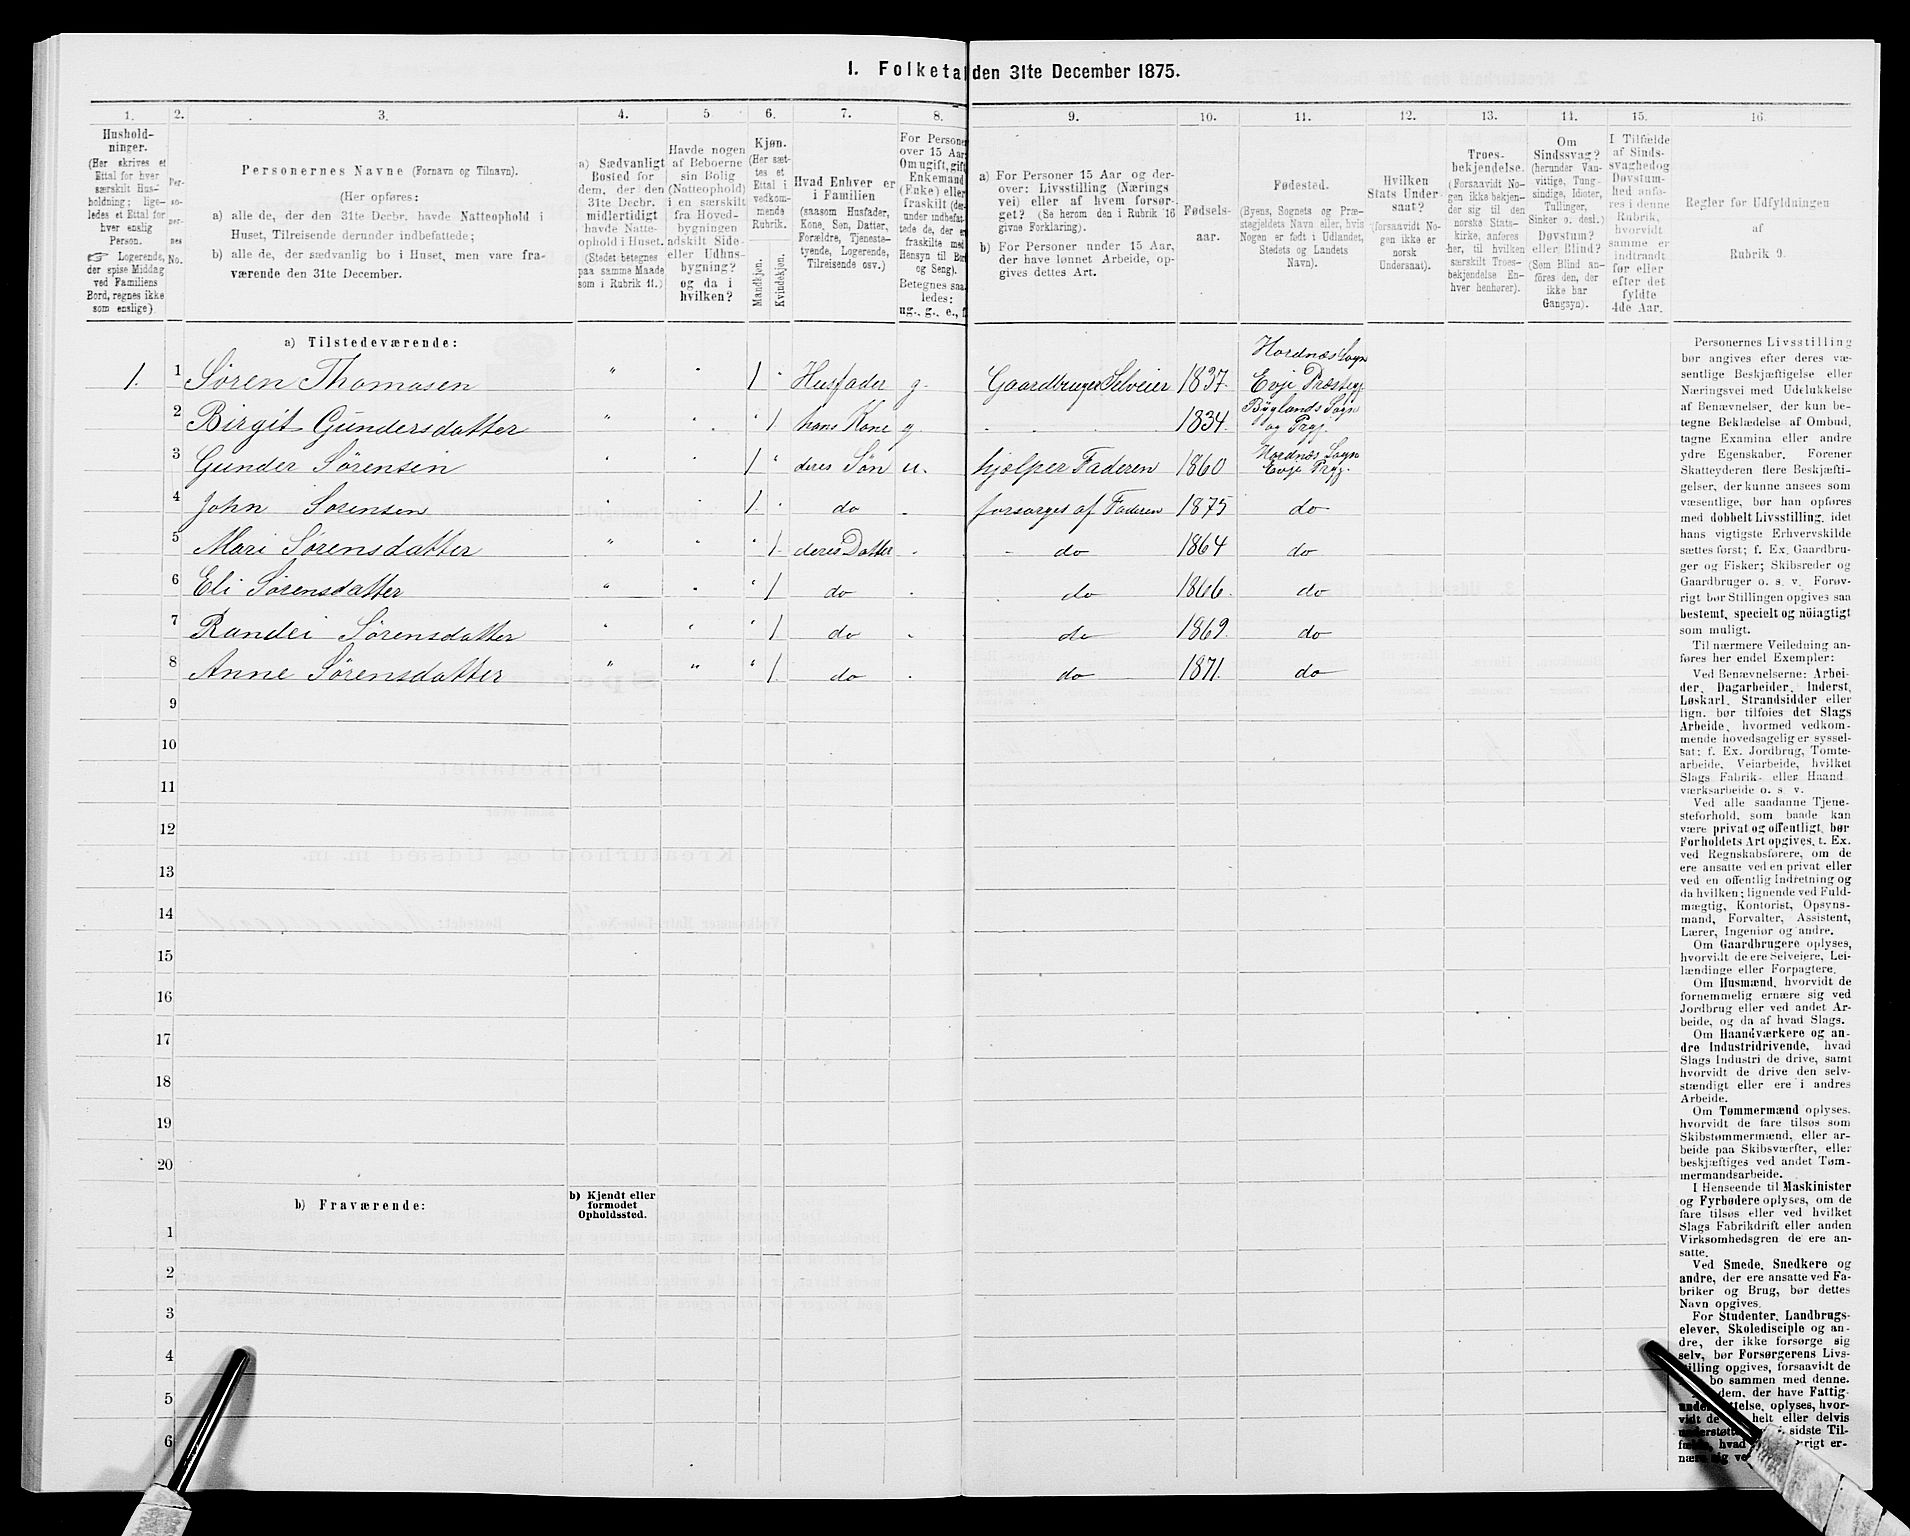 I. Folketal den 31te December 1875.
1. 2. 3. 4. 5 6. 7. 8. 9. 10. 11. 12. 13. 14. 15. 16.
Hushold-
ninger.
(Her skrives et
Ettal for hver
særskilt Hus-
holdning; lige-
ledes et Ettal for
hver enslig
Person.
☞ Logerende,
der spise Middag
ved Familiens
Bord, regnes ikke
som enslige).
Per-
so-
ner-
nes
No.
Personernes Navne (Fornavn og Tilnavn).
(Her opføres:
a) alle de, der den 31te Decbr. havde Natteophold i
Huset, Tilreisende derunder indbefattede;
b) alle de, der sædvanlig bo i Huset, men vare fra-
værende den 31te December.
a) Sædvanligt
Bosted for
dem, der den
31te Decbr.
midlertidigt
havde Natte-
ophold i Huset.
(Stedet betegnes
paa samme Maade
som i Rubrik 11.)
Havde nogen
af Beboerne
sin Bolig
(Natteophold)
i en særskilt
fra Hoved-
bygningen
adskilt Side-
eller Udhus-
bygning?
og da i
hvilken?
Kjøn.
(Her sæt-
tes et
Ettal i
vedkom-
mende
Rubrik.
Mandkjøn.
Kvindekjøn.
Hvad Enhver er
i Familien
(saasom Husfader,
Kone, Søn, Datter,
Forældre, Tjeneste-
tyende, Logerende,
Tilreisende osv.)
For Persone
over 15 Aar
Om ugift, gift
Enkemand
(Enke) eller
fraskilt (der-
under indbefat-
tede de, der e
fraskilte med
Hensyn til Bor
og Seng).
Betegnes saa
ledes:
ug., g., e., f.
a) For Personer 15 Aar og der-
over: Livsstilling (Nærings
vei) eller af hvem forsør-
get? (Se herom den i Rubrik 16
givne Forklaring).
b) For Personer under 15 Aar,
der have lønnet Arbeide, op-
gives dettes Art.
Fødsels-
aar.
Fødested.
(Byens, Sognets og Præ-
stegjeldets Navn eller, hvis
Nogen er født i Udlandet,
Stedets og Landets
Navn).
Hvilken
Stats Under-
saat?
(forsaavidt No-
gen ikke er
norsk
Undersaat).
Troes-
bekjendelse.
(Forsaavidt No-
gen ikke bekjen-
der sig til den
norske Stats-
kirke, anføres
her, til hvilken
særskilt Troes-
bekjendelse En-
hver henhører).
Om
Sindssvag?
(herunder Van-
vittige, Tung-
sindige, Idioter,
Tullinger,
Sinker o. desl.)
Døvstum?
eller Blind?
(Som Blind an-
føres den, der
ikke har
Gangsyn).
I Tilfælde
af Sinds-
svaghed og
Døvstum-
hed anfø-
res i denne
Rubrik,
hvorvidt
samme er
indtraadt
før eller
efter det
fyldte
4de Aar.
Regler for Udfyldningen
af
Rubrik 9.
a) Tilstedeværende:
1. 1 Søren Thomasen " " 1 " Husfader g. Gaardbruger Selveier 1837. Hordnæs Sogn Evje Præstegj
2 Birgit Gundersdatter " " " 1 hans Kone g. 1834. Byglands Sogn og Prgj.
3 Gunder Sørensen " " 1 " deres Søn u. hjælper Faderen 1860 Hordnæs Sogn Evje Prgj.
4 John Sørensen " " 1. " do forsørges af Faderen 1875 do
5 Mari Sørensdatter " " " 1. deres Datter do 1864 do
6 Eli Sørensdatter " " " 1 do do 1866. do
7 Randei Sørensdatter " " " 1 do do 1869. do
8 Anne Sørensdatter " " " 1. do do 1871. do
9
10
11
12
13
14
15
16
17
18
19
20
b) Fraværende:
b) Kjendt eller
formodet
Opholdssted.
1
2
3
4
5
6
Personernes Livsstilling
bør angives efter deres væ-
sentlige Beskjæftigelse eller
Næringsvei med Udelukkelse
af Benævnelser, der kun be-
tegne Beklædelse af Ombud,
tagne Examina eller andre
ydre Egenskaber. Forener
Skatteyderen flere Beskjæfti-
gelser, der kunne ansees som
væsentlige, bør han opføres
med dobbelt Livsstilling, idet
hans vigtigste Erhvervskilde
sættes først; f. Ex. Gaardbru-
ger og Fisker; Skibsreder og
Gaardbruger o. s. v. Forøv-
rigt bør Stillingen opgives saa
bestemt, specielt og nöiagtigt
som muligt.
Til nærmere Veiledning an-
føres her endel Exempler:
Ved Benævnelserne: Arbei-
der, Dagarbeider, Inderst,
Løskarl, Strandsidder eller
lign. bør tilføies det Slags
Arbeide, hvormed vedkom-
mende hovedsagelig er syssel-
sat; f. Ex. Jordbrug, Tomte-
arbeide, Veiarbeide, hvilket
Slags Fabrik- eller Haand
værksarbeide o. s. v.
Ved alle saadanne Tjene-
steforhold, som baade kan
være privat og offentligt, bør
Forholdets Art opgives, t. Ex.
ved Regnskabsførere, om de
ere ansatte ved en privat eller
ved en offentlig Indretning og
da hvilken; lignende ved Fuld-
mægtig, Kontorist, Opsyns-
mand, Forvalter, Assistent,
Lærer, Ingeniør og andre.
Om Gaardbrugere oplyses,
hvorvidt de ere Selveiere, Lei-
lændinge eller Forpagtere.
Om Husmænd, hvorvidt de
fornemmelig ernære sig ved
Jordbrug eller ved andet Ar-
beide, og da af hvad Slags.
Om Haandværkere og an-
dre Industridrivende, hvad
Slags Industri de drive, samt
hvorvidt de drive den selv-
stændigt eller ere i andres
Arbeide.
Om Tømmermænd oplyses,
hvorvidt de fare tilsøs som
Skibstømmermænd, eller ar-
beide paa Skibsværfter, eller
beskjæftiges ved andet Tøm-
mermandsarbeide.
I Henseende til Maskinister
og Fyrbødere oplyses, om de
fare tilsøs eller ved hvilket
Slags Fabrikdrift eller anden
Virksomhedsgren de ere an-
satte.
Ved Smede, Snedkere og
andre, der ere ansatte ved Fa-
briker og Brug, bør dettes
Navn opgives.
For Studenter, Landbrugs-
elever, Skoledisciple og an-
dre, der ikke forsørge sig
selv, bør Forsørgerens Livs-
stilling opgives, forsaavidt de
bo sammen med denne.
dem, der have Fattig-
understøttelse, oplyses, hvor-
vidt de helt eller delvis
understøtte sidste Til-
fælde, hvad rigt er-
nære sig ve